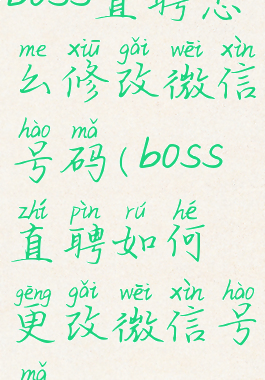 boss直聘怎
me xiū gǎi wēi xìn
么修改微信
hào mǎ
号码(boss
zhí pìn rú hé
直聘如何
gēng gǎi wēi xìn hào
更改微信号
mǎ